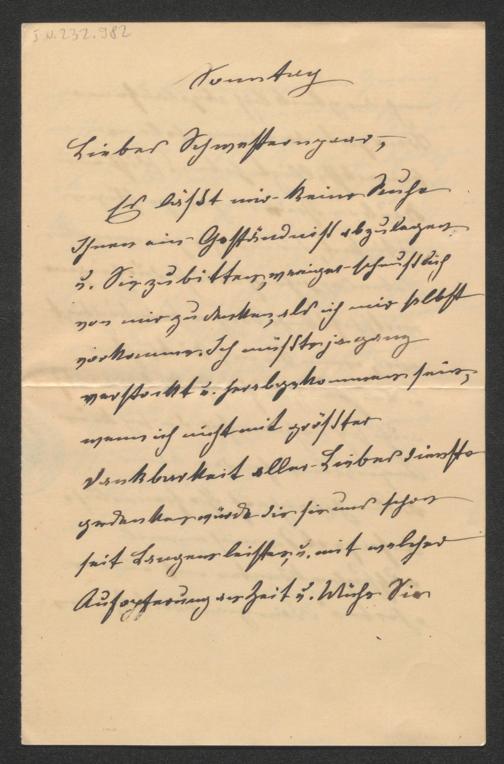 I.N. 232.982
Sonntag
Liebes Schwesternpaar,
Es läßt mir keine Ruhe
Ihnen ein Geständniß abzulegen
u. Sie zu bitten, weniger scheußlich
von mir zu denken, als ich mir selbst
vorkomme. Ich müßte ja ganz
verstockt u. herabgekommen sein,
wenn ich nicht mit größter
Dankbarkeit aller Liebesdienste
gedenken würde die sie uns schon
seit Langem leisten, u. mit welcher
Aufopferung an Zeit u. Mühe Sie